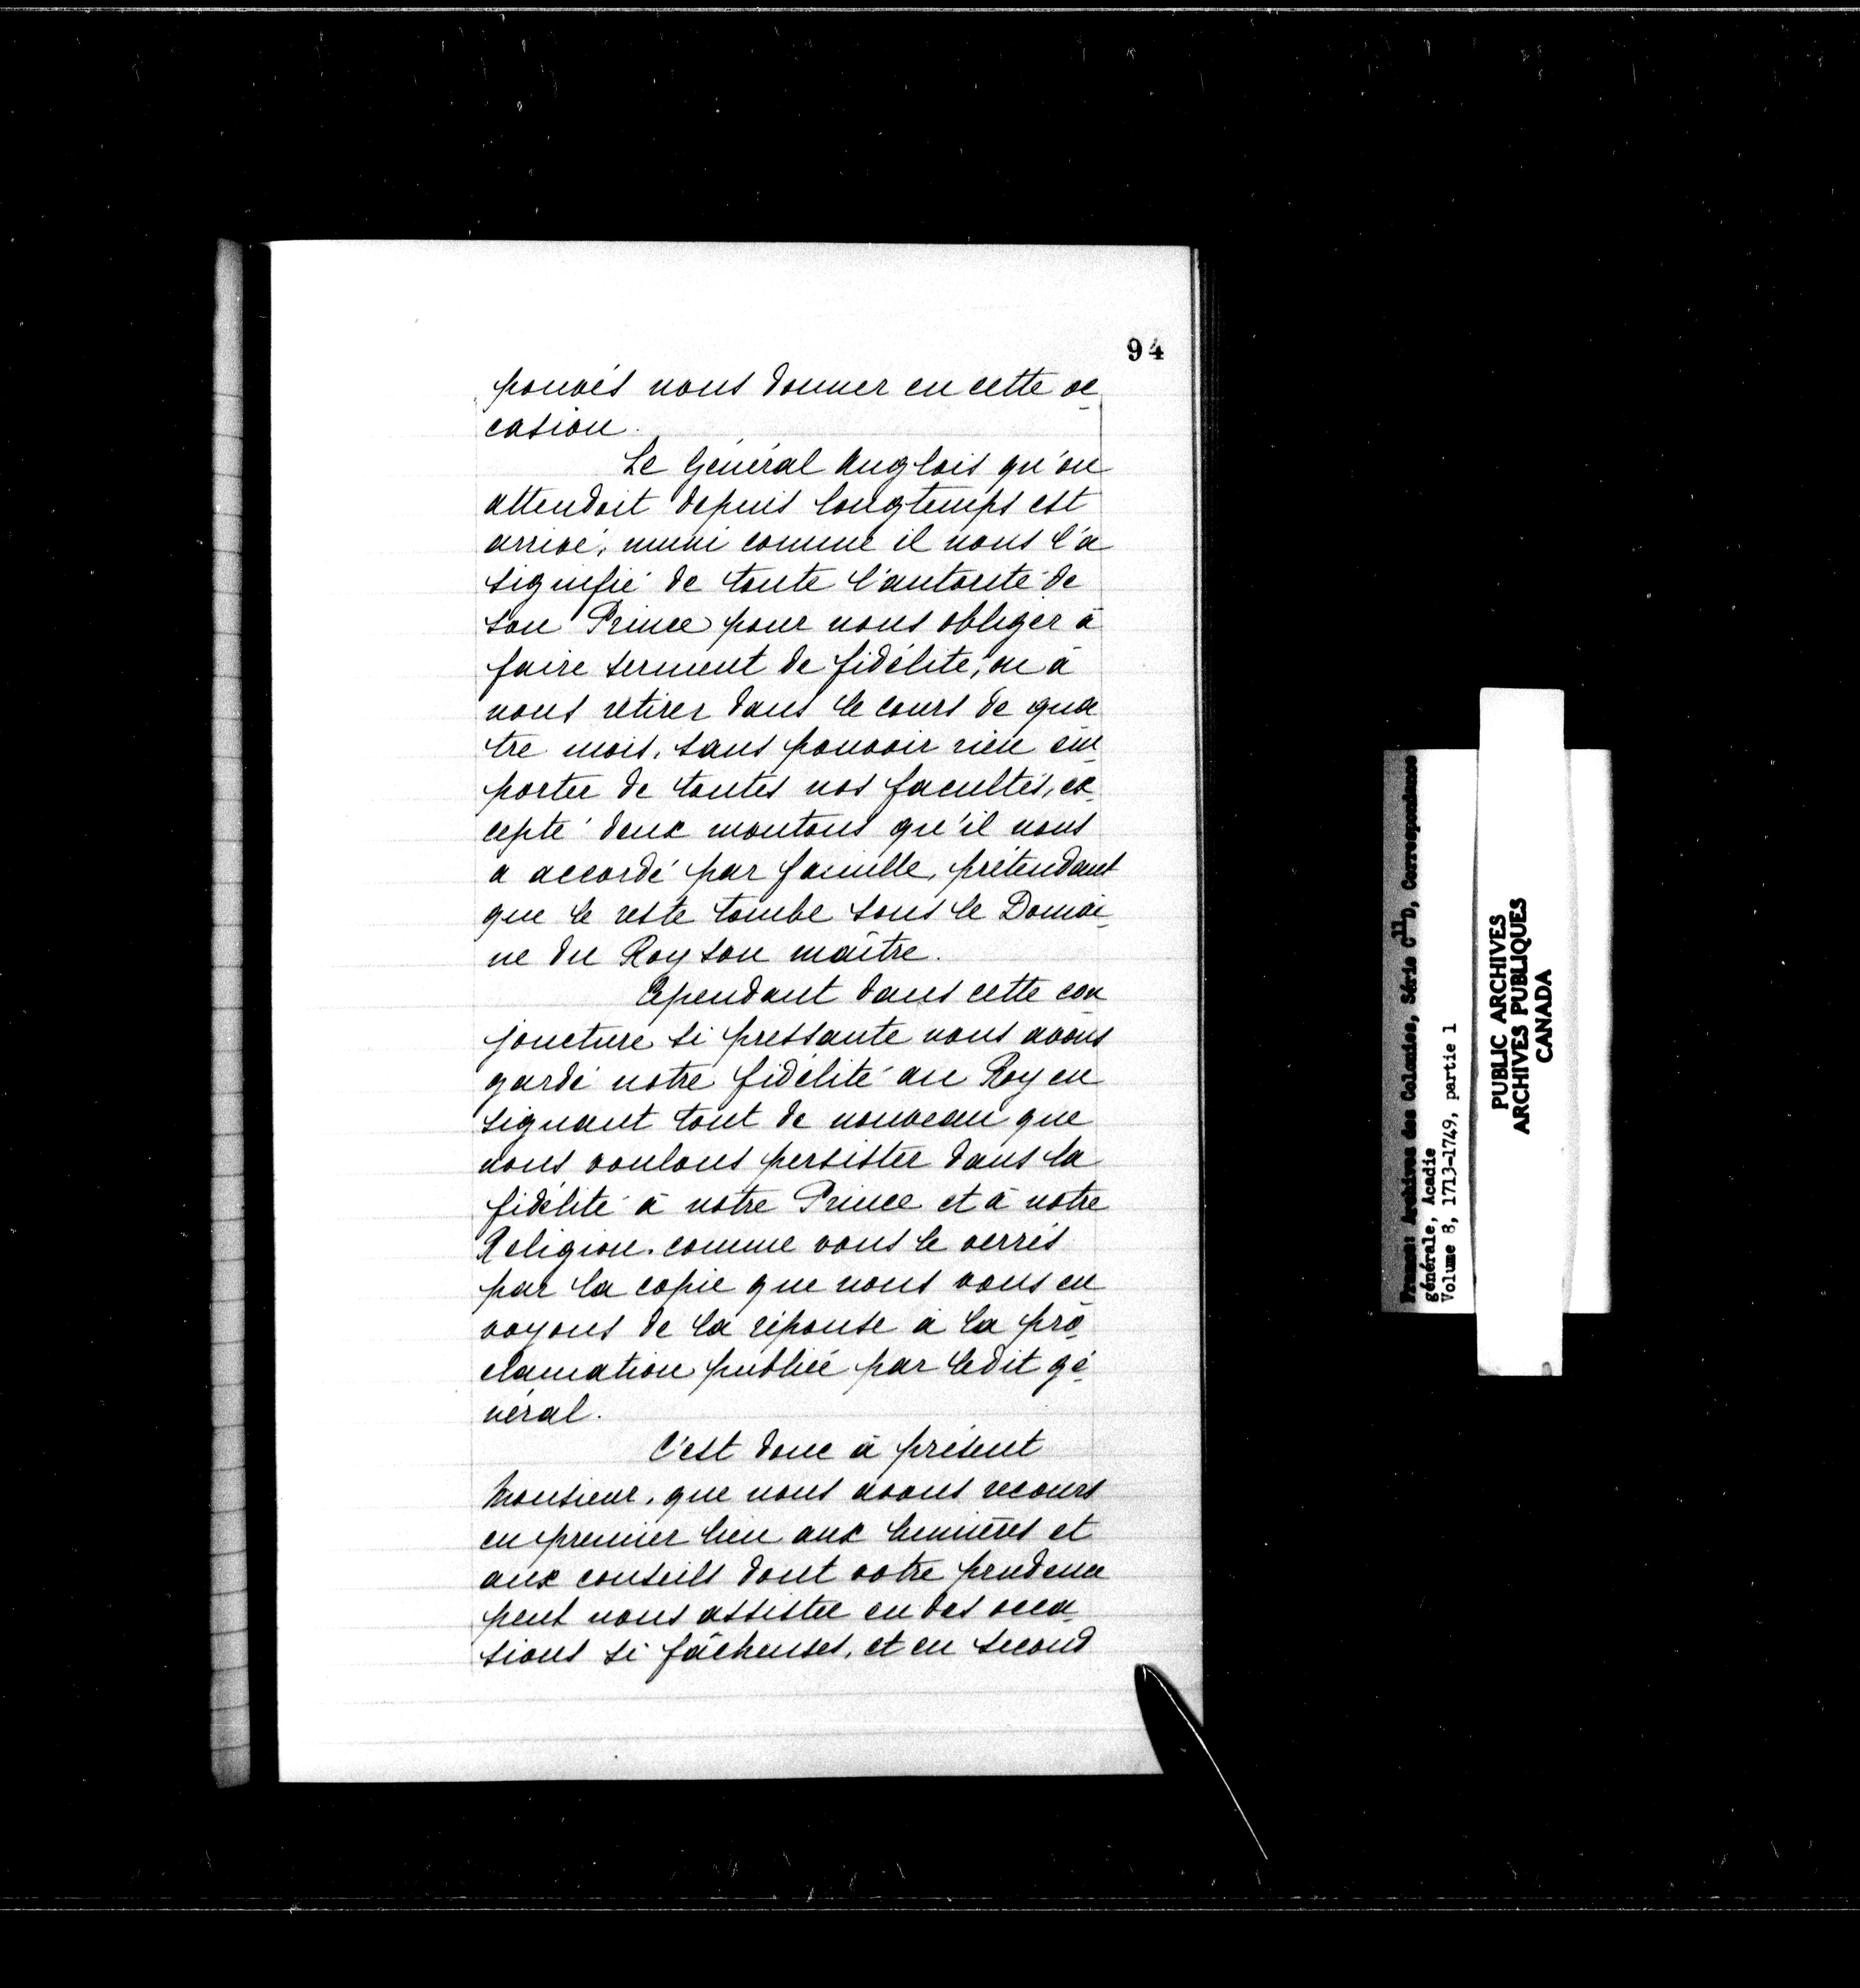 94
pouvés nous donner en cette oc
casion.
Le Général Anglois qu'on
attendoit depuis longtemps est
arrivé, muni comme il nous l'a
signifié de toute l'autorité de
son Prince pour nous obliger à
faire serment de fidélité, ou à
nous retirer dans le cours de qua
tre mois, sans pouvoir rien em
porter de toutes nos facultés, ex
cepté deux moutons qu'il nous
a accordé par famille, prétendant
que le reste tombe sous le Domai
ne du Roy son maître.
Cependant dans cette con
joncture si pressante nous avons
gardé notre fidélité au Roy en
signant tout de nouveau que
nous voulons persister dans la
fidélité à notre Prince et à notre
Religion. comme vous le verrés
par la copie que nous vous en
voyons de la réponse à la pro
clamation publiée par ledit gé
néral.
C'est donc à présent
Monsieur, que nous avons recours
en premier lieu aux lumières et
aux conseils dont votre prudence
peut nous assister en des occa
sions si fâcheuses, et en second
France: Archives des Colonies, Série C11D, Correspondance
générale, Acadie
Volume 8, 1713-1749, partie 1
PUBLIC ARCHIVES
ARCHIVES PUBLIQUES
CANADA